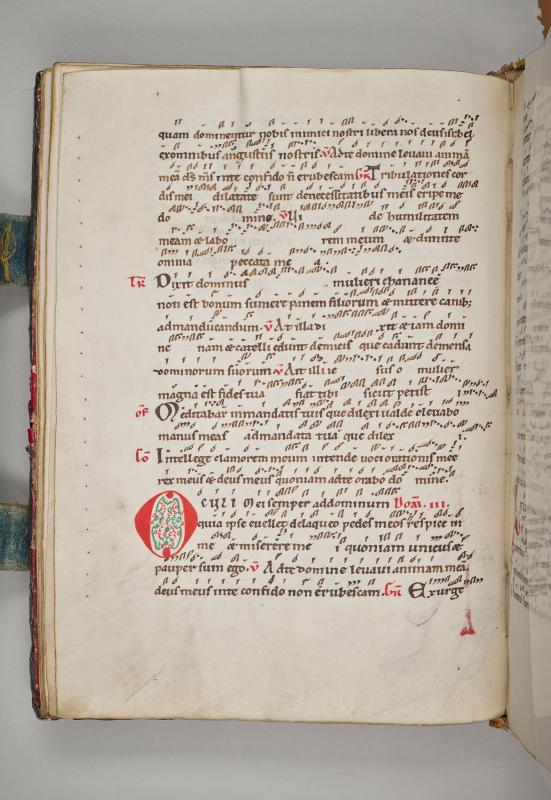 quam dominentur nobis inimici nostri libera nos deus israhel
ex omnibus angustiis nostris. V Ad te domine levavi animã
meã ds ms in te confido ñ erubescam GR Tribulationes cor
dis mei dilatate sunt de necessitatibus meis eripe me
do mine. V Vi de humilitatem
meam & labo rem meum & dimitte
omnia peccata me a.
TR Dixit dominus mulieri chananee
non est bonum sumere panem filiorum & mittere canib;
ad manducandum. V At illa di xit & iam domi
ne nam & catelli edunt de micis que cadunt de mensa
dominorum suorum. V Ait illi ie sus o mulier
magna est fides tua fiat tibi sicut petisti
OF Meditabar in mandatis tuis que dilexi valde & levabo
manus meas ad mandata tua que dilexi
CO Intellege clamorem meum intende voci orationis mee
rex meus & deus meus quoniam ad te orabo do mine.
OCULI Mei semper ad dominum Dom. III.
quia ipse evellet de laqueo pedes meos respice in
me & miserere me i quoniam unicus &
pauper sum ego. V Ad te domine levavi animam meã
deus meus in te confido non erubescam. GR Exurge